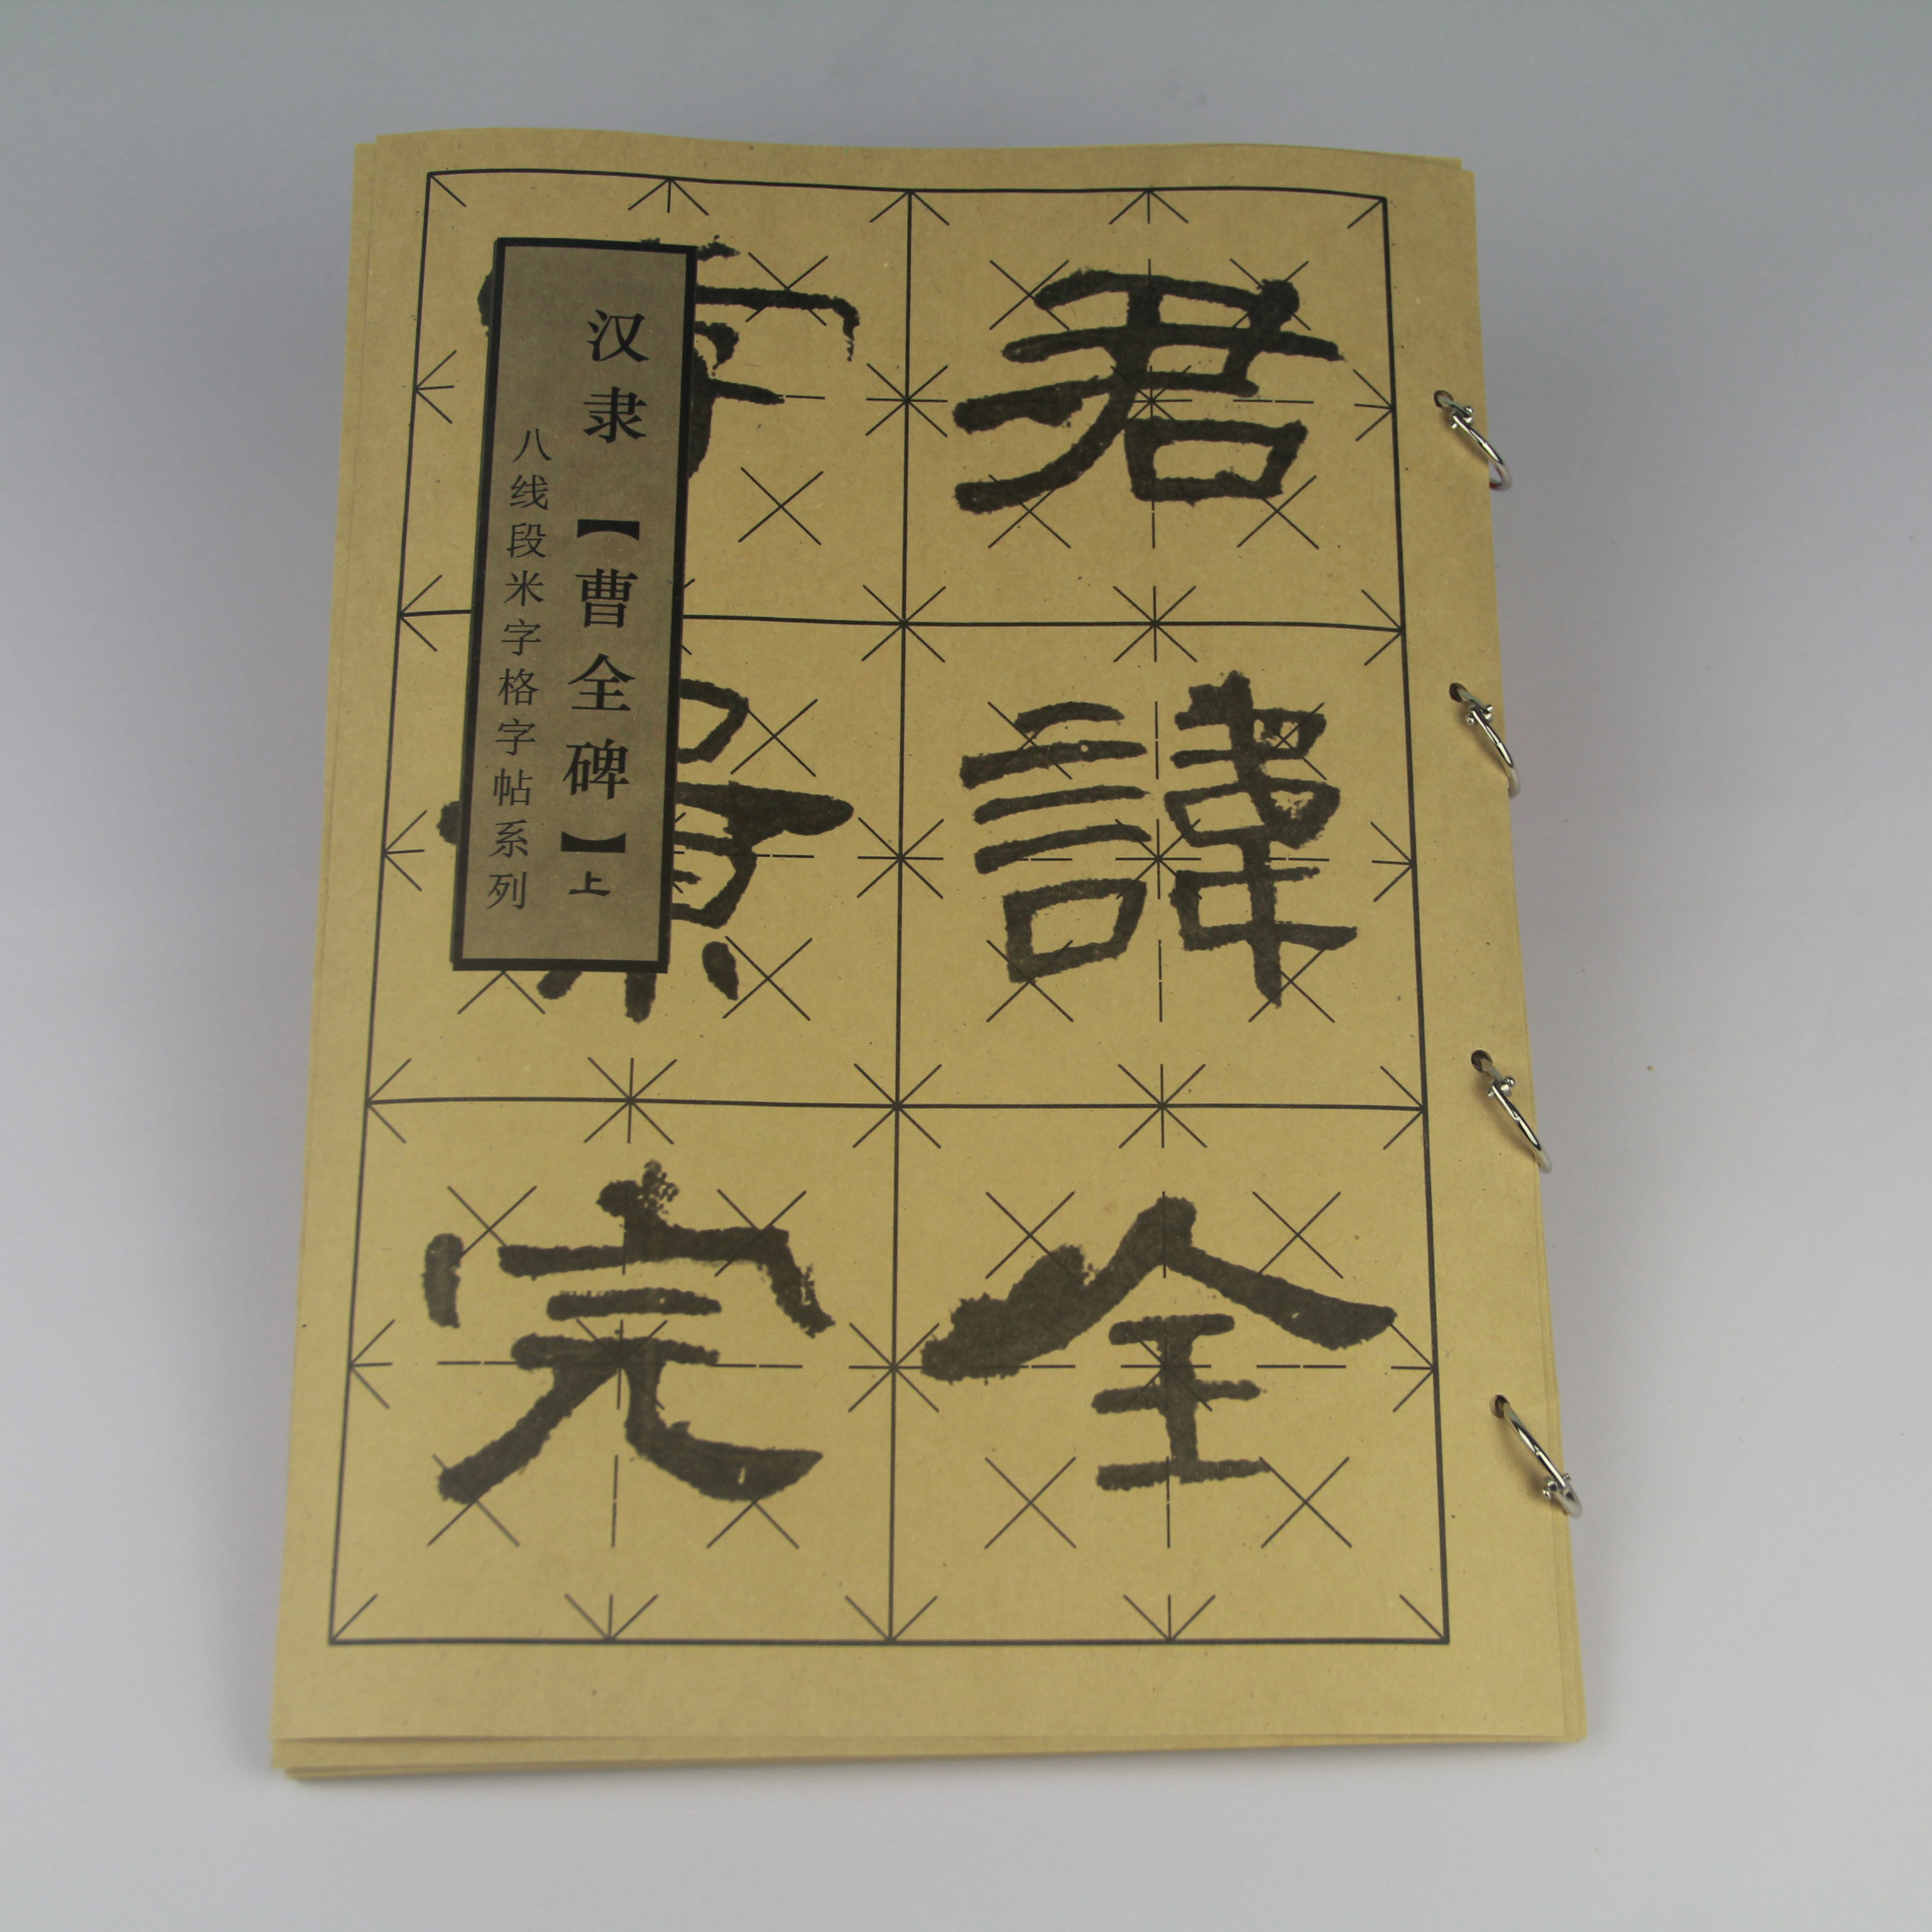 君諱全
字景完
汉隶【曹全碑】上
八线段米字格字帖系列